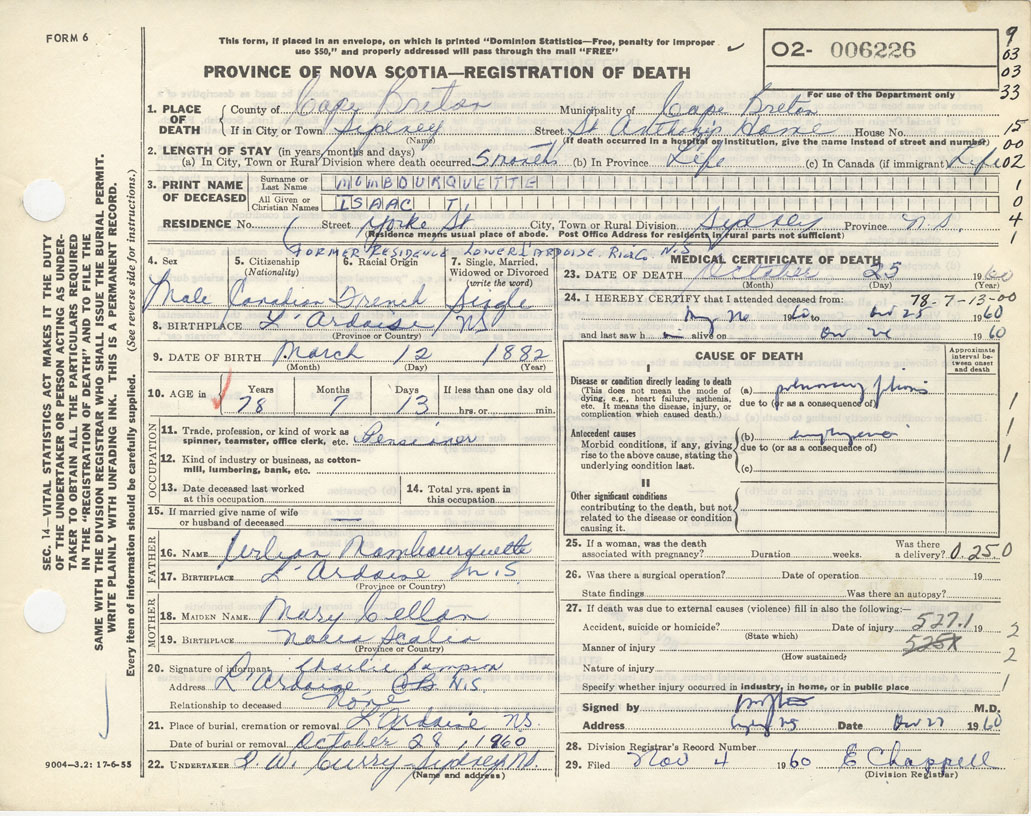 FORM 6
This form, if placed in an envelope, on which is printed "Dominion Statistics—Free, penalty for improper
use $50," and properly addressed will pass through the mail "FREE"
PROVINCE OF NOVA SCOTIA—REGISTRATION OF DEATH
02- 006226
For use of the Department only
9
03
03
33
15
00
02
1
0
4
1
1. PLACE OF DEATH County of Cape Breton Municipality of Cape Breton
If in City or Town Sydney Street St Anthony's Home House No.
(Name) (If death occurred in a hospital or institution, give the name instead of street and number)
2. LENGTH OF STAY (in years, months and days)
(a) In City, Town or Rural Division where death occurred 5 months (b) In Province Life (c) In Canada (if immigrant) Life
3. PRINT NAME OF DECEASED
Surname or Last Name MOMBOURQUETTE
All Given or Christian Names ISAAC T.
RESIDENCE No. Street Yorke St City, Town or Rural Division Sydney Province N.S.
(Residence means usual place of abode. Post Office Address for residents in rural parts not sufficient)
FORMER RESIDENCE LOWER L'ARDOISE. N.S.
4. Sex Male
5. Citizenship (Nationality) Canadian
6. Racial Origin French
7. Single, Married, Widowed or Divorced (write the word) Single
8. BIRTHPLACE L'Ardoise NS
(Province or Country)
9. DATE OF BIRTH March 12 1882
(Month) (Day) (Year)
10. AGE in Years 78 Months 7 Days 13 If less than one day old hrs. or min.
OCCUPATION
11. Trade, profession, or kind of work as spinner, teamster, office clerk, etc. Pensioner
12. Kind of industry or business, as cotton-mill, lumbering, bank, etc.
13. Date deceased last worked at this occupation
14. Total yrs. spent in this occupation
15. If married give name of wife or husband of deceased —
FATHER
16. NAME Mombourquette
17. BIRTHPLACE L'Ardoise N.S.
(Province or Country)
MOTHER
18. MAIDEN NAME Mary
19. BIRTHPLACE Nova Scotia
(Province or Country)
20. Signature of informant Charlie Sampson
Address L'Ardoise, CB N.S.
Relationship to deceased None
21. Place of burial, cremation or removal L'Ardoise NS.
Date of burial or removal October 28, 1960
22. UNDERTAKER Curry Sydney NS.
(Name and address)
MEDICAL CERTIFICATE OF DEATH
23. DATE OF DEATH October 25 1960
(Month) (Day) (Year)
24. I HEREBY CERTIFY that I attended deceased from: 78-7-13-00
1960 to Oct 25 1960
and last saw h alive on Oct 1960
CAUSE OF DEATH
Approximate interval between onset and death
I
Disease or condition directly leading to death
(This does not mean the mode of dying, e.g., heart failure, asthenia, etc. It means the disease, injury, or complication which caused death.)
(a) pulmonary
due to (or as a consequence of)
Antecedent causes
Morbid conditions, if any, giving rise to the above cause, stating the underlying condition last.
(b) emphysema
due to (or as a consequence of)
(c)
II
Other significant conditions
contributing to the death, but not related to the disease or condition causing it.
1
1
1
25. If a woman, was the death associated with pregnancy? Duration weeks. Was there a delivery? 0.25.0
26. Was there a surgical operation? Date of operation 19
State findings Was there an autopsy?
27. If death was due to external causes (violence) fill in also the following:—
Accident, suicide or homicide? Date of injury 19
(State which)
527.1
2
Manner of injury
(How sustained)
2
Nature of injury
Specify whether injury occurred in industry, in home, or in public place 1
Signed by M.D.
Address Date Oct 27 1960
28. Division Registrar's Record Number
29. Filed Nov 4 1960 E Chappell
(Division Registrar)
SEC. 14—VITAL STATISTICS ACT MAKES IT THE DUTY
OF THE UNDERTAKER OR PERSON ACTING AS UNDER-
TAKER TO OBTAIN ALL THE PARTICULARS REQUIRED
IN THE "REGISTRATION OF DEATH" AND TO FILE THE
SAME WITH THE DIVISION REGISTRAR WHO SHALL ISSUE THE BURIAL PERMIT.
WRITE PLAINLY WITH UNFADING INK. THIS IS A PERMANENT RECORD.
Every item of information should be carefully supplied. (See reverse side for instructions.)
9004—3.2: 17-6-55